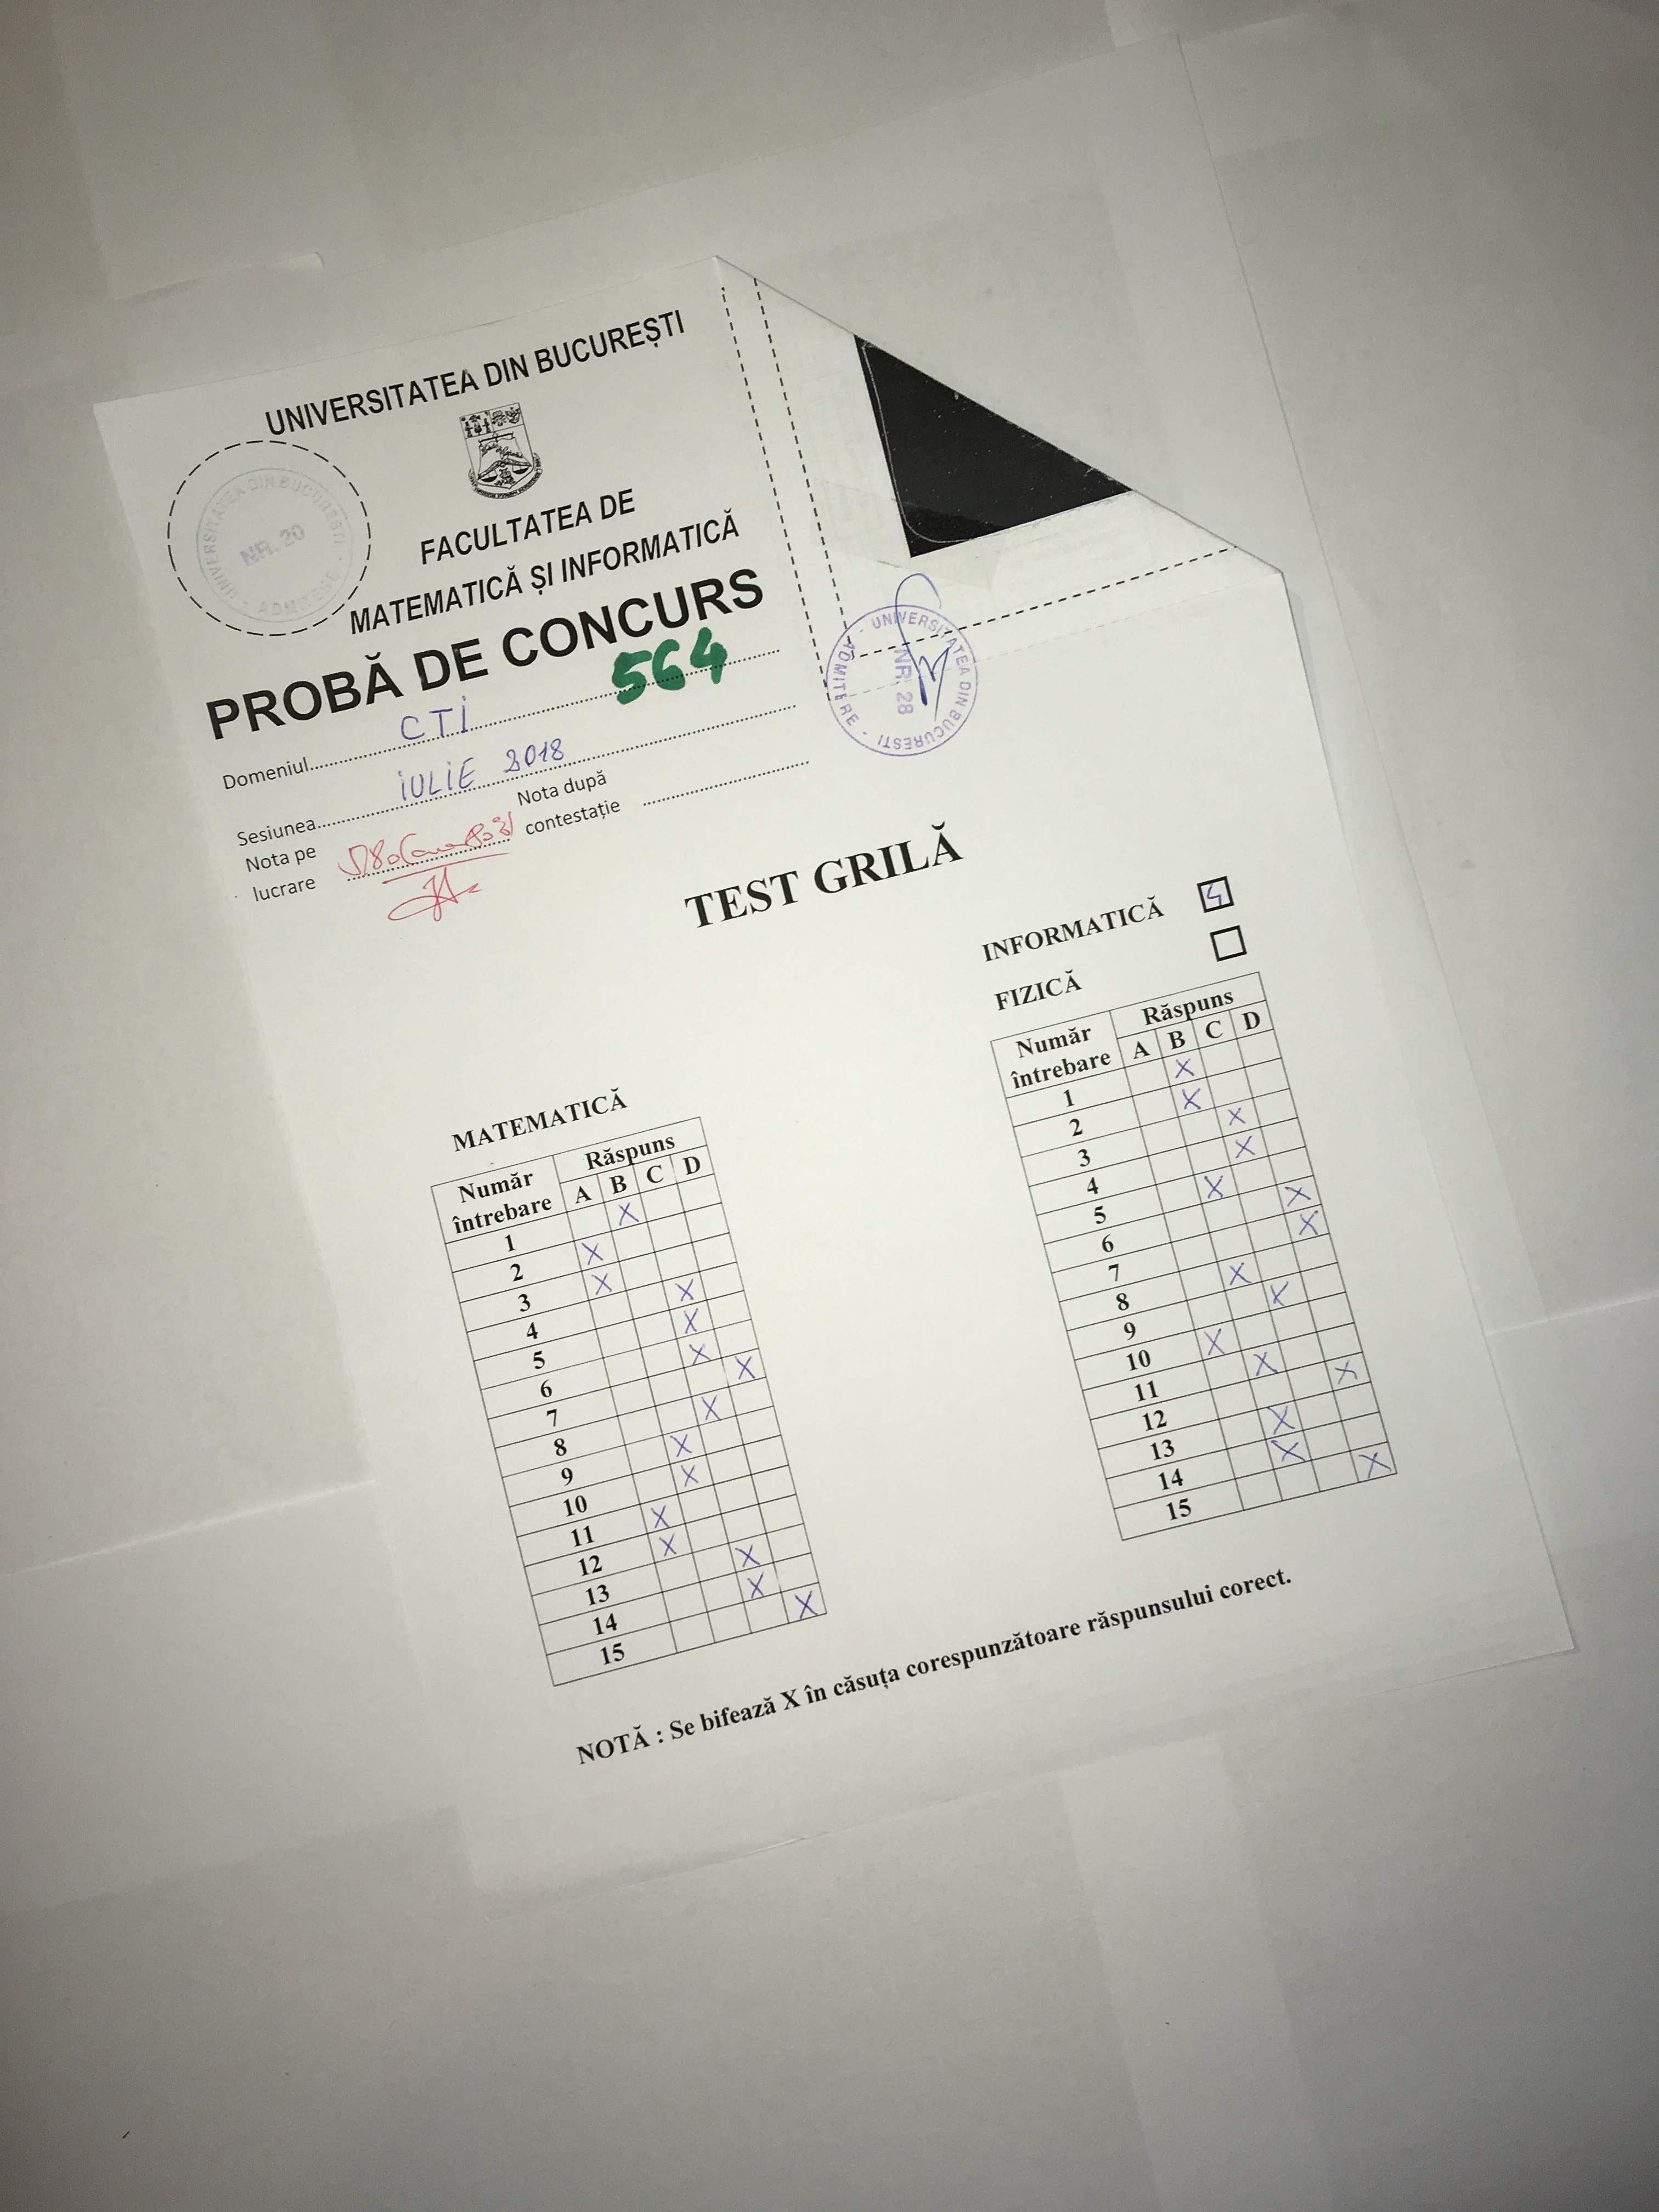 UNIVERSITATEA DIN BUCUREȘTI
UNIVERSITATEA DIN BUCURESTI - ADMITERE -
NR. 20
FACULTATEA DE
MATEMATICĂ ȘI INFORMATICĂ
PROBĂ DE CONCURS
564
Domeniul CTI
Sesiunea iULiE 2018
Nota pe lucrare
Nota după contestație
UNIVERSITATEA DIN BUCURESTI - ADMITERE -
NR. 28
TEST GRILĂ
INFORMATICĂ
FIZICĂ
MATEMATICĂ
Număr întrebare Răspuns
A B C D
1 X
2 X
3 X
4 X
5 X
6 X
7 X
8 X
9 X
10 X
11 X
12 X
13 X
14 X
15 X
Număr întrebare Răspuns
A B C D
1 X
2 X
3 X
4 X
5 X
6 X
7 X
8 X
9 X
10 X
11 X
12 X
13 X
14 X
15 X
NOTĂ : Se bifează X în căsuța corespunzătoare răspunsului corect.